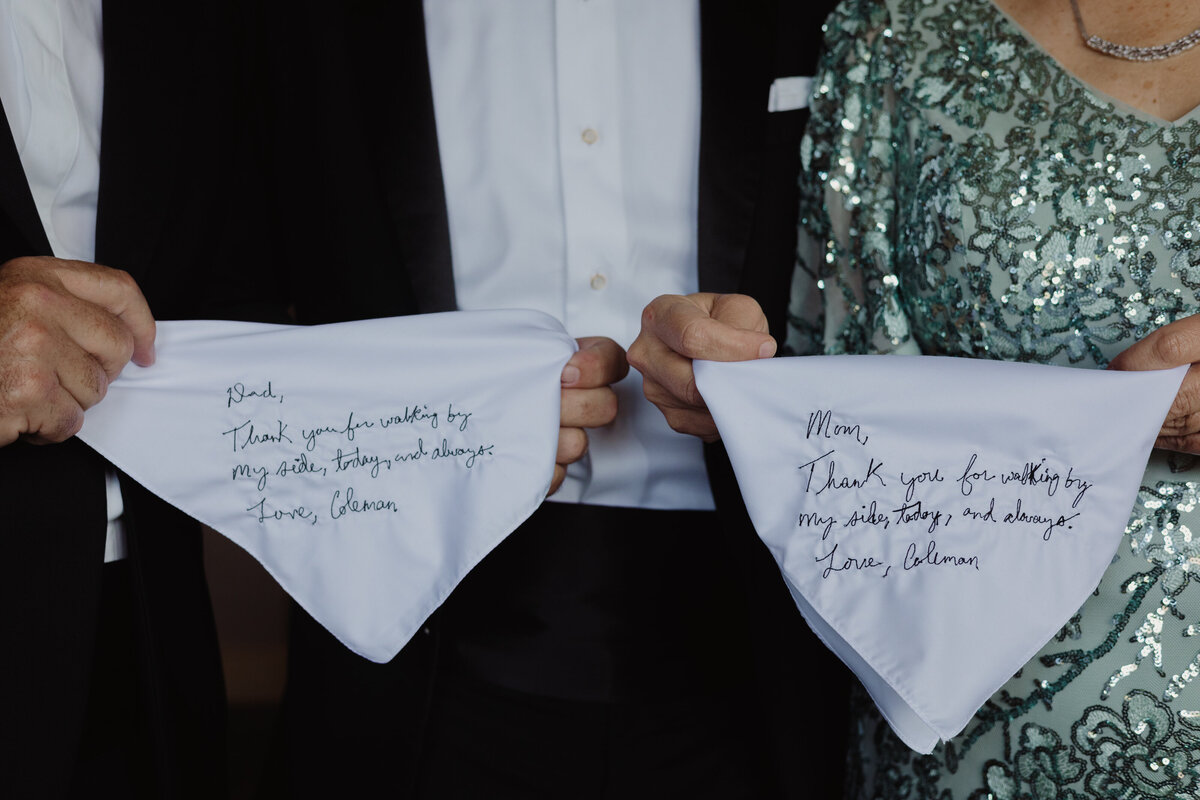 Dad,
Thank you for walking by
my side, today, and always.
Love, Coleman
Mom,
Thank you for walking by
my side, today, and always.
Love, Coleman